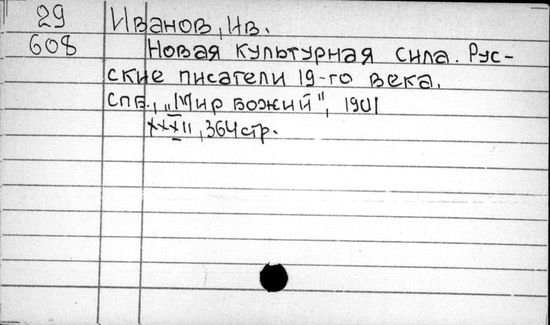 29
608
Иванов, Ив.
Новая культурная сила. Рус-
ские писатели 19-го века.
Спб., „Мир Божий", 1901
XXXII, 364 стр.